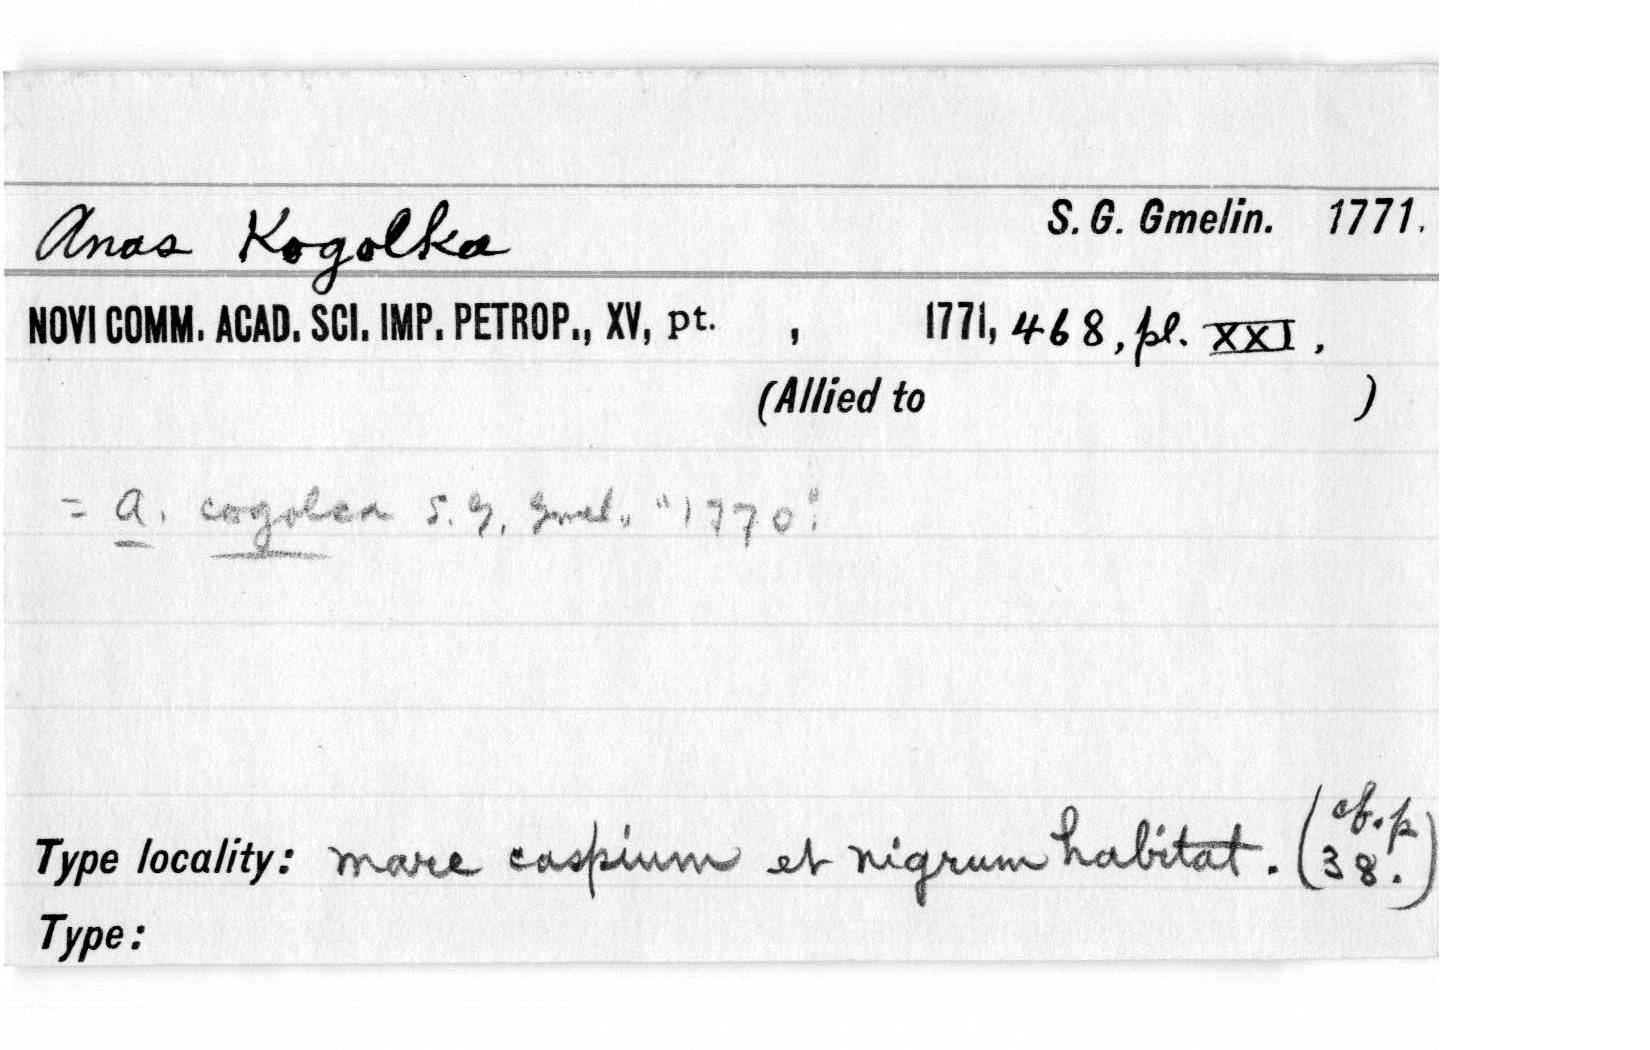 Anas Kogolka S. G. Gmelin. 1771.
NOVI COMM. ACAD. SCI. IMP. PETROP., XV, pt. , 1771, 468, pl. XXI,
(Allied to )
= A. cogolca S. G. Gmel., "1770".
Type locality: mare caspium et nigrum habitat. (cf. p 38.)
Type: